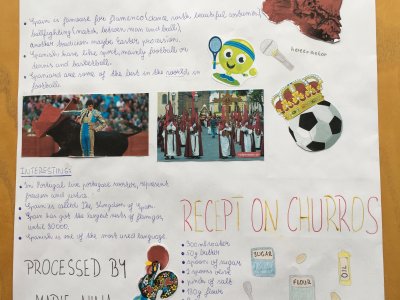 • Spain is famouse for flamenco (dance with beautiful costumes),
bullfighting (match between man and bull),
another tradicion maybe Easter procession.
• Spanish have like sport, mainly football or
tennis and basketball.
• Spaniards are some of the best in the world in
football.
INTERESTINGS
• In Portugal live portugal rooster, represent
freedom and
• Spain is called The Kingdom of Spain.
• Spain has got the largest nests of flamingos,
until 20 000.
• Spanish is one of the most used language.
RECEPT ON CHURROS
• 300 ml water
• 50g butter
• spoon of sugar
• pinch of salt
• 180g flour
SUGAR
FLOUR
OIL
PROCESSED BY